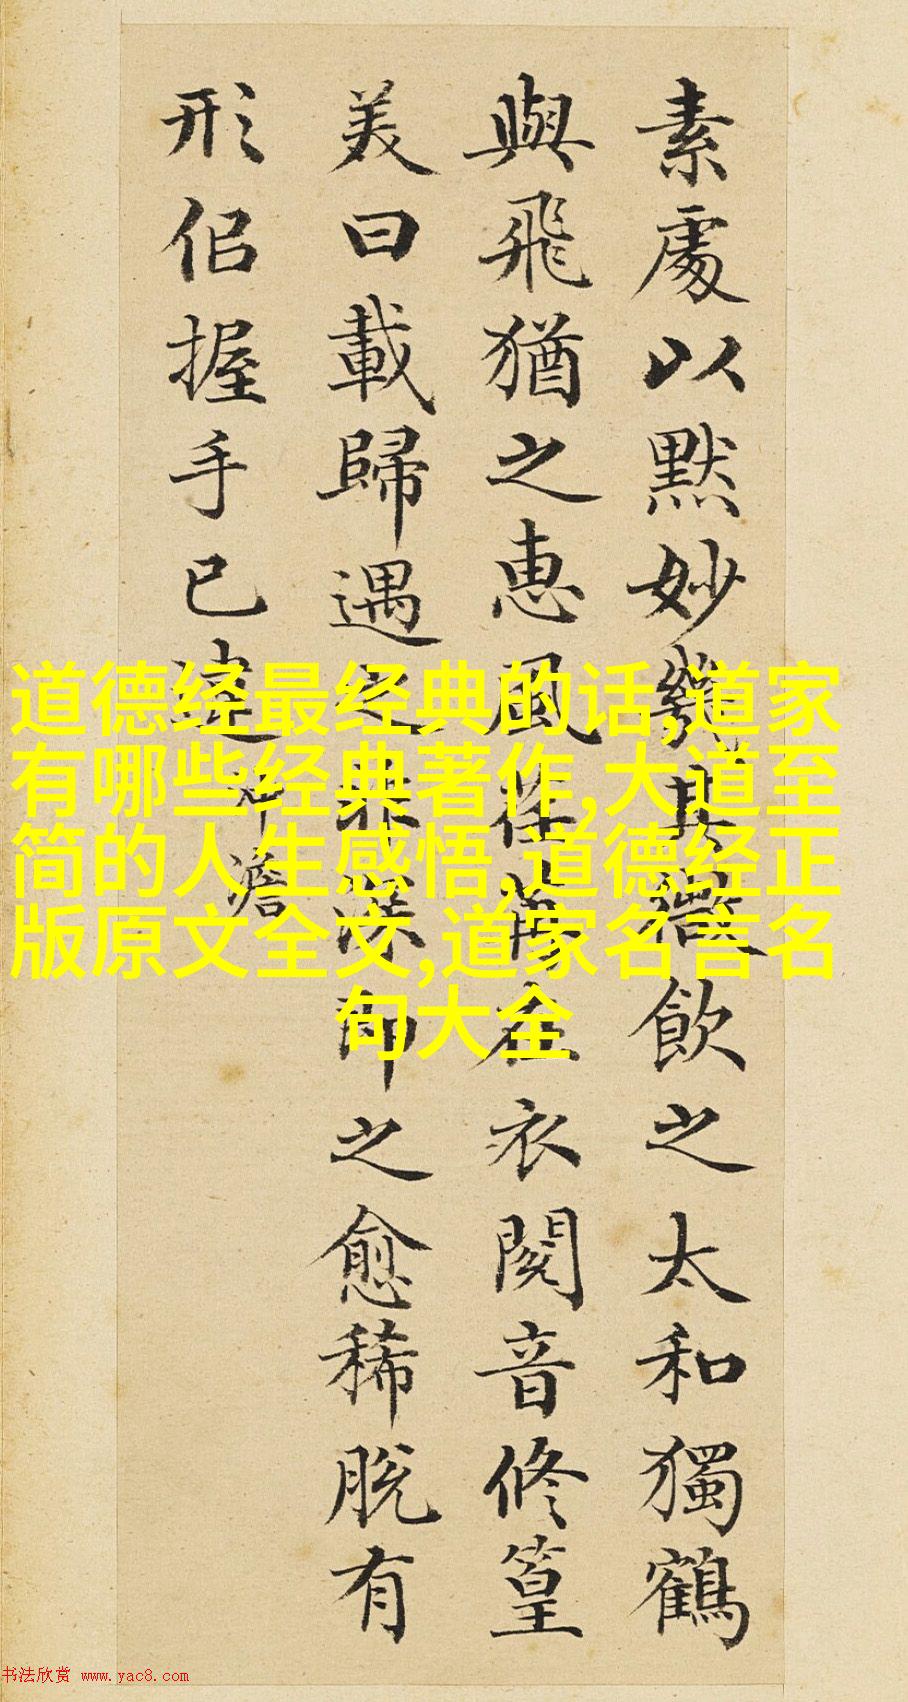 素處以默妙機其微飲之太和獨鶴
與飛猶之惠風荏苒在衣閱音修篁
美曰載歸遇之匪深即之愈稀脫有
形佀握手已違 沖澹
道德经最经典的话,道家
有哪些经典著作,大道至
简的人生感悟,道德经正
版原文全文,道家名言名
句大全
书法欣赏 www.yac8.com